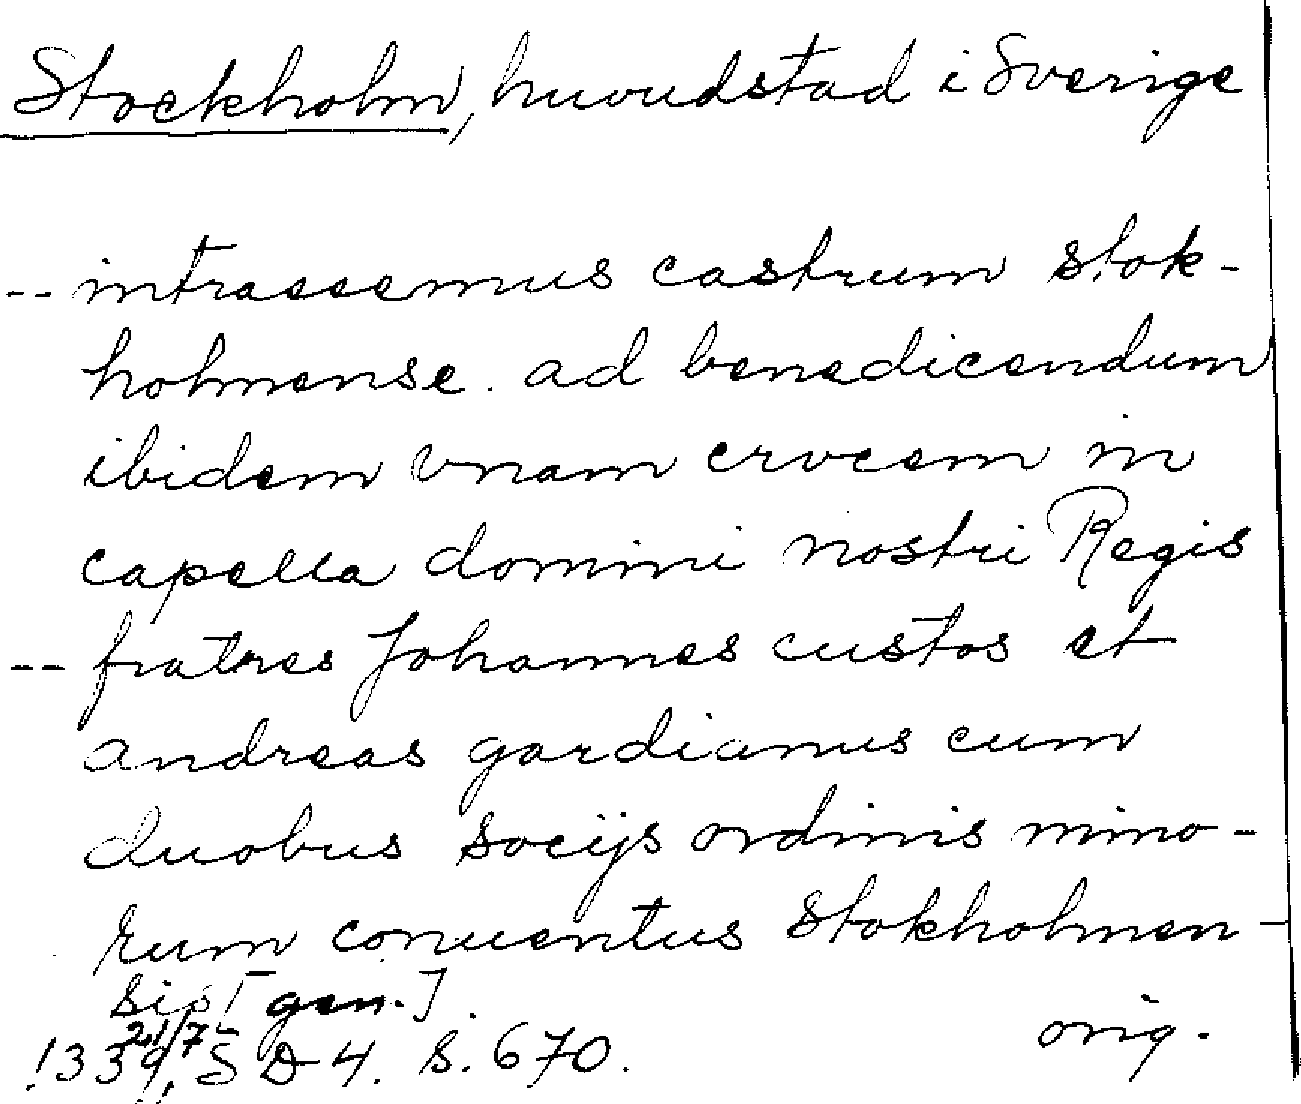 Stockholm, huvudstad i Sverige
-- intrassemus castrum stok-
holmense. ad benedicendum
ibidem vnam crvcem in
capella domini nostri Regis
-- fratres Johannes custos et
andreas gardianus cum
duobus socijs ordinis mino-
rum conuentus stokholmen-
sis [gen.].
1339 21/7, S D 4. S. 670.
orig.